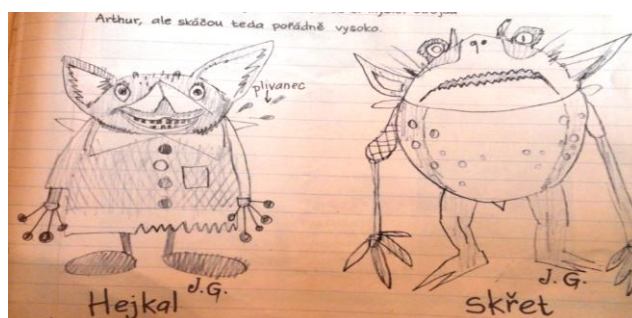 Arthur, ale skáčou teda pořádně vysoko.
plivanec
J.G.
J.G.
Hejkal
skřet